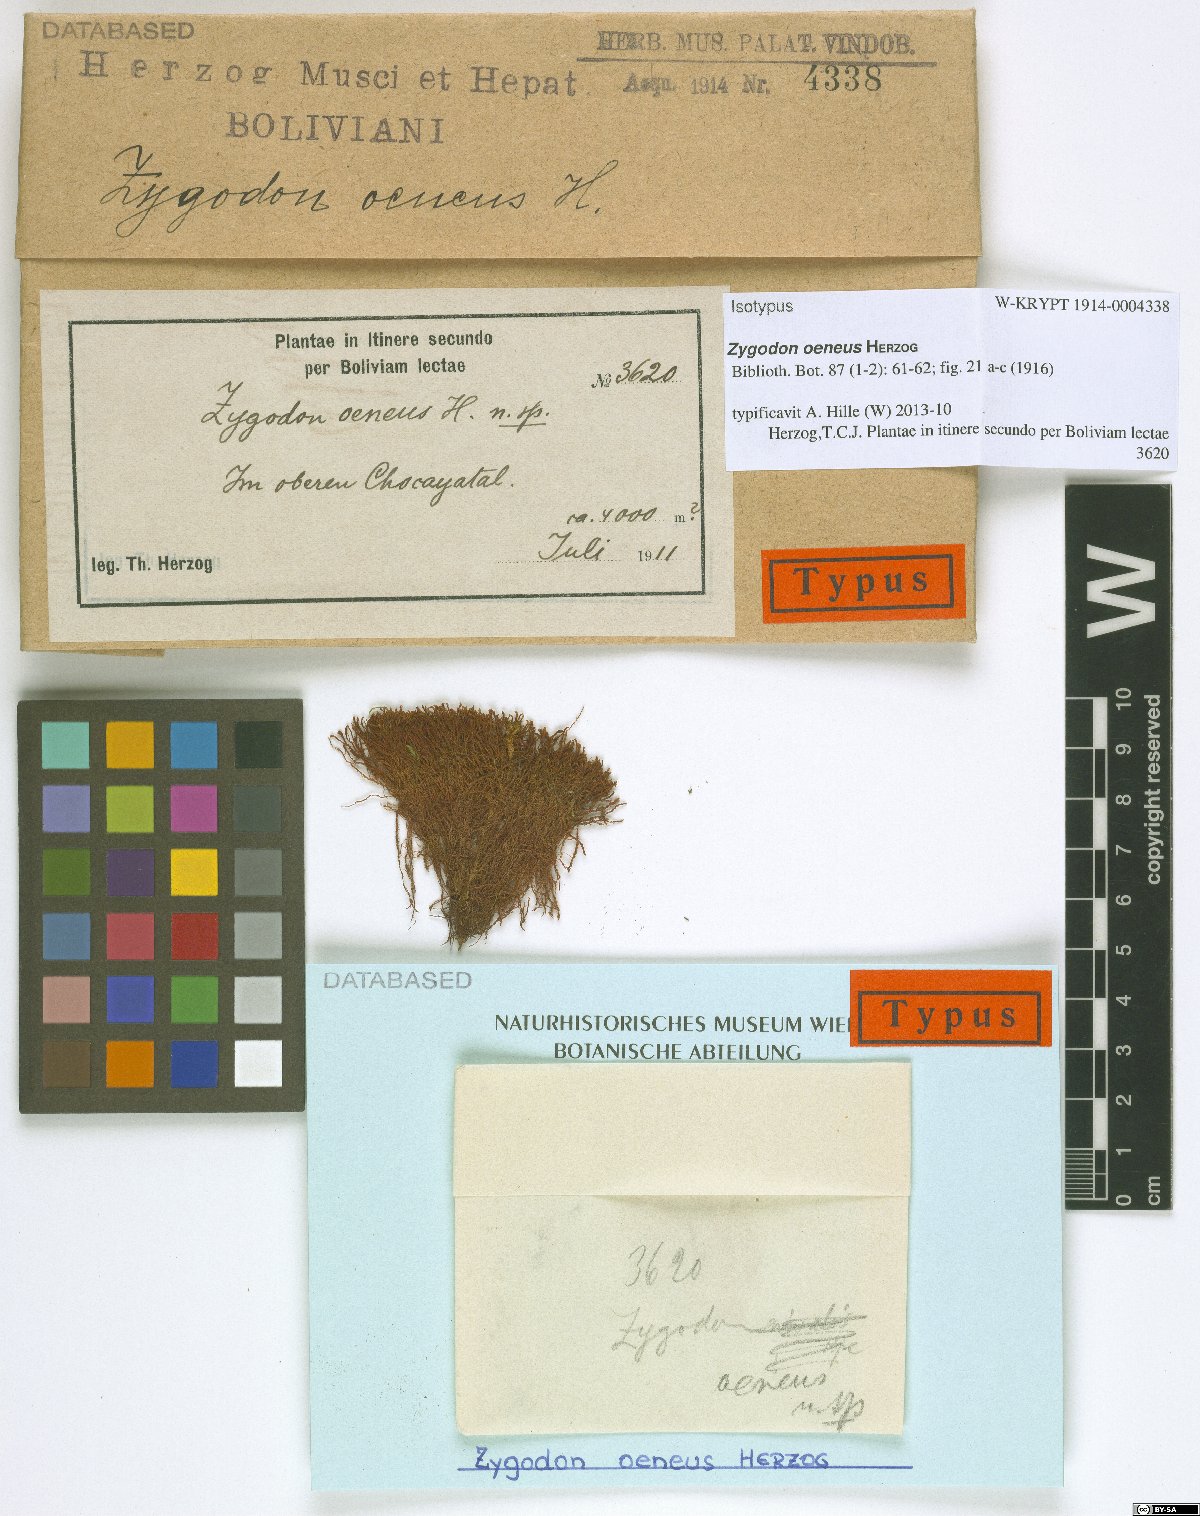 DATABASED
HERB. MUS. PALAT. VINDOB.
Herzog Musci et Hepat.
Acqu. 1914 Nr. 4338
BOLIVIANI
Zygodon oeneus H.
Plantae in Itinere secundo
per Boliviam lectae
№ 3620
Zygodon oeneus H. n. sp.
Im oberen Chocayatal.
ca. 4000 m?
Juli 1911
leg. Th. Herzog
Isotypus W-KRYPT 1914-0004338
Zygodon oeneus HERZOG
Biblioth. Bot. 87 (1-2): 61-62; fig. 21 a-c (1916)
typificavit A. Hille (W) 2013-10
Herzog,T.C.J. Plantae in itinere secundo per Boliviam lectae
3620
Typus
W
10
9
8
7
6
5
4
3
2
1
0
cm
copyright reserved
DATABASED
Typus
NATURHISTORISCHES MUSEUM WIE
BOTANISCHE ABTEILUNG
3620
Zygodon
oeneus
n. sp
Zygodon oeneus HERZOG
cc BY-SA